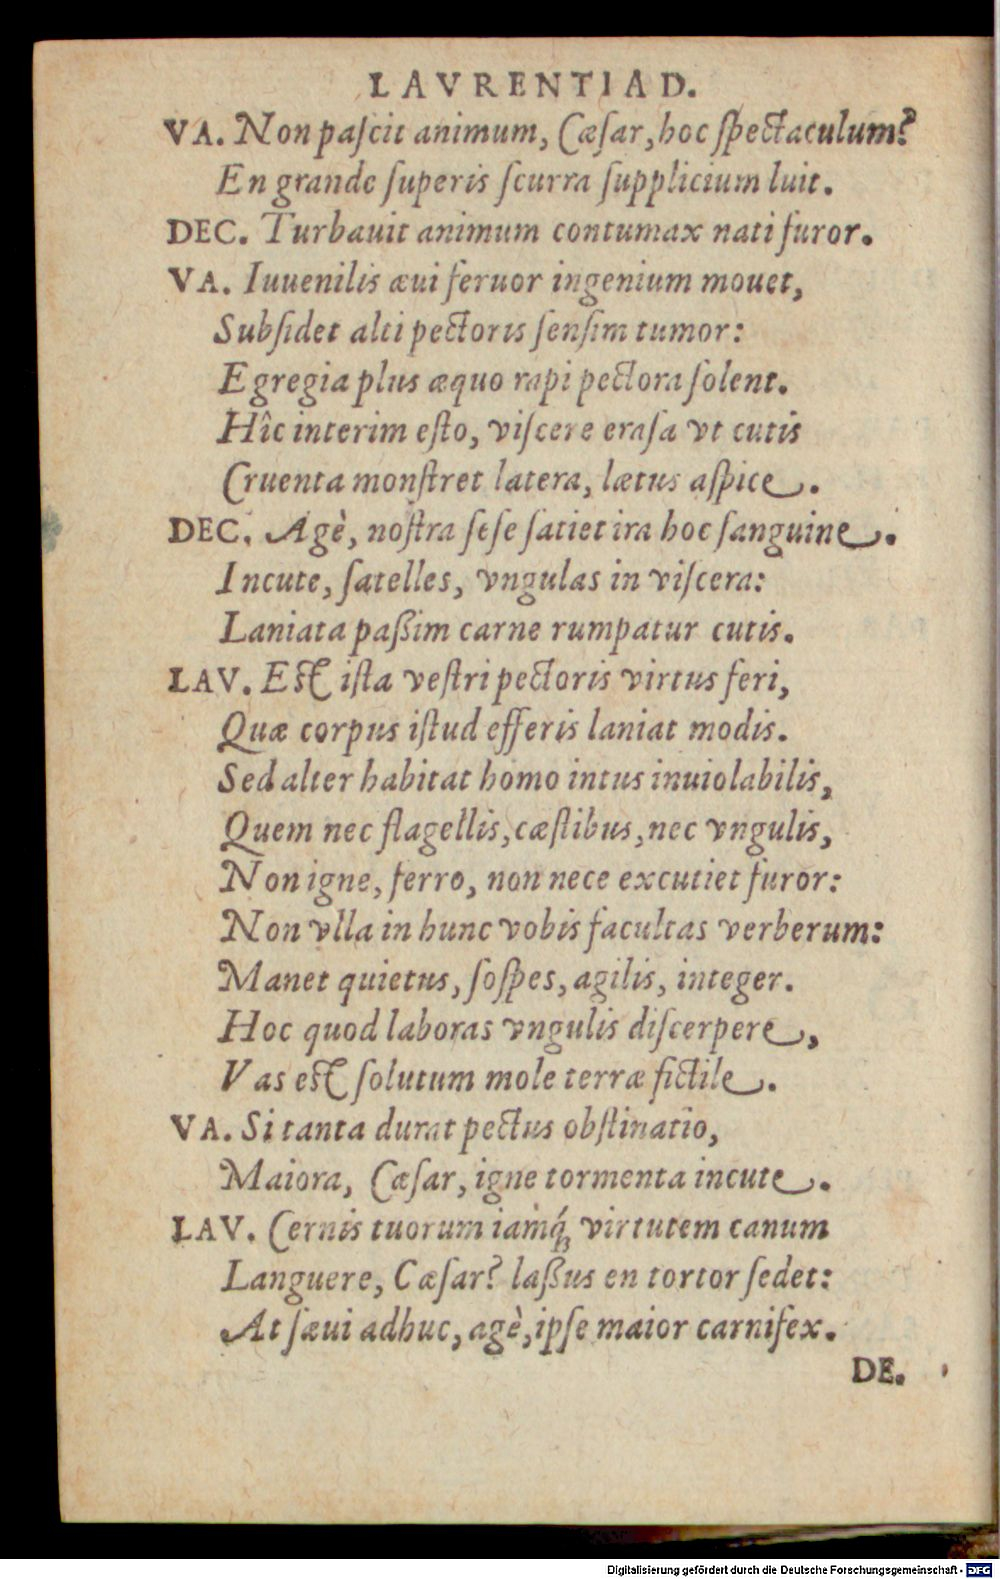 LAVRENTIAD.
VA. Non pascit animum, Cæsar, hoc spectaculum?
En grande superis scurra supplicium luit.
DEC. Turbauit animum contumax nati furor.
VA. Iuuenilis æui feruor ingenium mouet,
Subsidet alti pectoris sensim tumor:
Egregia plus æquo rapi pectora solent.
Hîc interim esto, viscere erasa vt cutis
Cruenta monstret latera, lætus aspice.
DEC. Agè, nostra sese satiet ira hoc sanguine.
Incute, satelles, vngulas in viscera:
Laniata paßim carne rumpatur cutis.
LAV. Est ista vestri pectoris virtus feri,
Quæ corpus istud efferis laniat modis.
Sed alter habitat homo intus inuiolabilis,
Quem nec flagellis, cæstibus, nec vngulis,
Non igne, ferro, non nece excutiet furor:
Non vlla in hunc vobis facultas verberum:
Manet quietus, sospes, agilis, integer.
Hoc quod laboras vngulis discerpere,
Vas est solutum mole terræ fictile.
VA. Si tanta durat pectus obstinatio,
Maiora, Cæsar, igne tormenta incute.
LAV. Cernis tuorum iamq́ꝫ virtutem canum
Languere, Cæsar? laßus en tortor sedet:
At sæui adhuc, agè, ipse maior carnifex.
DE.
Digitalisierung gefördert durch die Deutsche Forschungsgemeinschaft - DFG